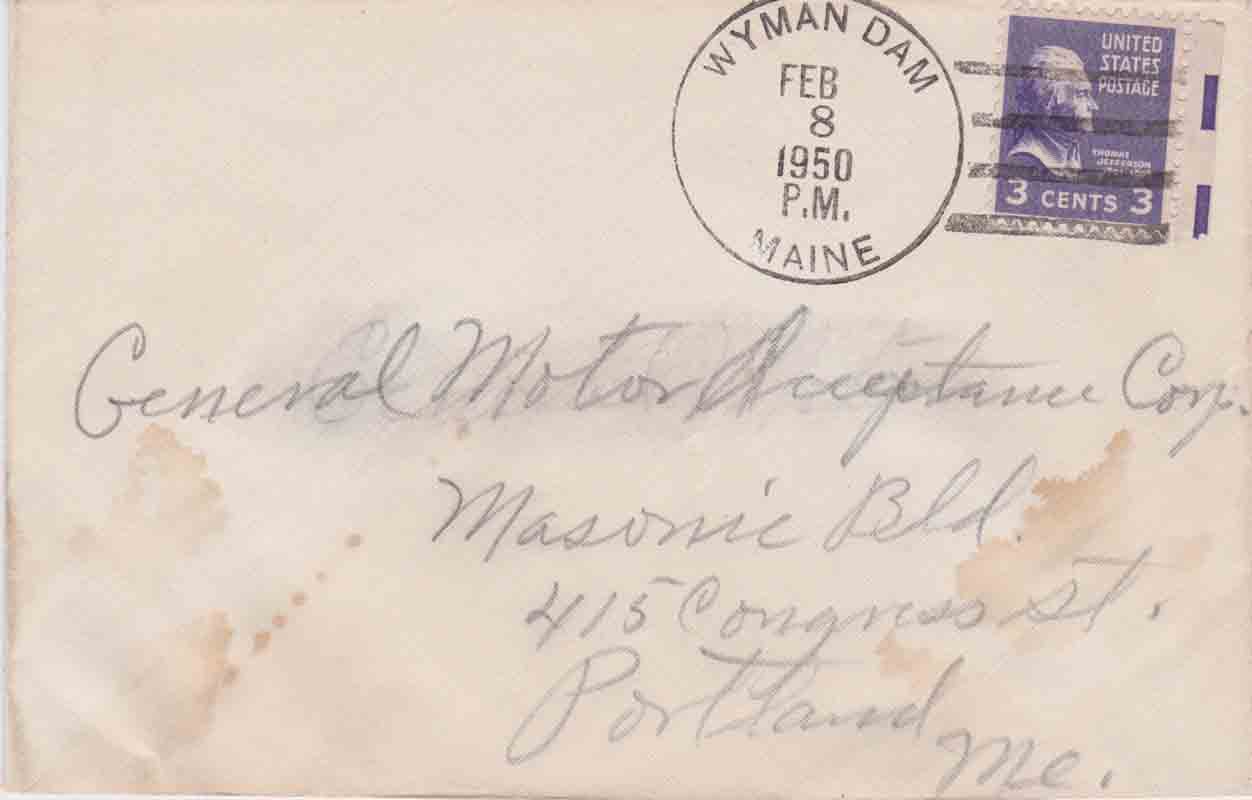 WYMAN DAM
FEB
8
1950
P.M.
MAINE
UNITED
STATES
POSTAGE
THOMAS
JEFFERSON
3 CENTS 3
General Motor Acceptance Corp.
Masonic Bld.
415 Congress St.
Portland
Me.